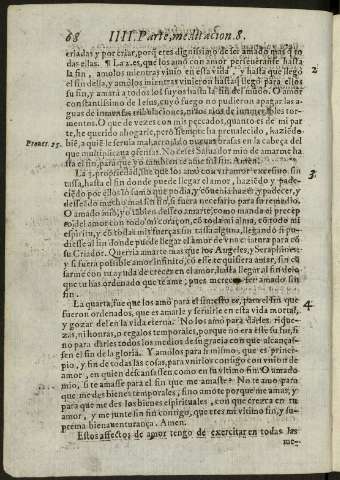 68 IIII. Parte, meditacion. 8.
criadas y por criar, porq̃ eres dignissimo de ser amado mas q̃ to
das ellas. ¶ La 2. es, que los amó con amor perseuerante hasta
la fin, amolos mientras viuio en esta vida, y hasta que llegó
el fin della, y amólos mientras viuieron hasta q̃ llegó para ellos
su fin, y amará a todos los suyos hasta la fin del mũdo. O amor
constantissimo de Iesus, cuyo fuego no pudieron apagar las a-
guas de inmensas tribulaciones, ni los rios de innumerables tor-
mentos. O que de vezes con mis peccados, quanto es de mi par
te, he querido ahogarle, pero siempre ha preualecido, haziẽdo
biẽ, a quiẽ le seruia mal,
el fin, para que yo tambien te ame sin fin. Amen.
La 3. propriedad, fue que los amó con vn amor excessiuo sin
tassa, hasta el fin donde puede llegar el amor, haziẽdo y pade-
ciẽdo por ellos lo sumo que podia, y cõuenia hazer, y padecer, y
desseãdo mucho mas sin fin, si fuera necessario para su remedio.
O amado mio, yo tãbien desseo amarte, como manda el precep
to del amor con todo mi coraçon, cõ toda mi alma, cõ todo mi
espiritu, y cõ todas mis fuerças sin tassa alguna, llegãdo si pu-
diesse al fin donde puede llegar el amor de vna criatura para cõ
su Criador. Querria amarte mas que los Angeles, y Seraphines:
y si fuera possible amor infinito, cõ esse te quisiera amar, sin cã
sarme con tu ayuda de crecer en el amor, hasta llegar al fin de lo
que tu has ordenado que te ame, pues mereces ser amado sin
fin.
La quarta, fue que los amó para el fin esto es, para el fin que
fueron ordenados, que es amarle y seruirle en esta vida mortal,
y gozar del en la vida eterna. No los amó para darles rique-
zas, ni honras, o regalos temporales, porque no era este su fin, si
no para darles todos los medios de su gracia con que alcanças-
sen el fin de la gloria. Y amólos para si mismo, que es princi-
pio, y fin de todas las cosas, para vnirlos consigo con vnion de
amor, en quien descansassen como en su vltimo fin. O amado
mio, si te amasse para el fin que me amaste? No te amo para
que me des bienes temporales, sino amote porque me amas, y
para que me des los bienes espirituales, con que crezca en tu
amor, y me junte sin fin contigo, que eres mi vltimo fin, y su-
prema bienauenturança. Amen.
Estos affectos de amor tengo de exercitar en todas las
2
3.
4